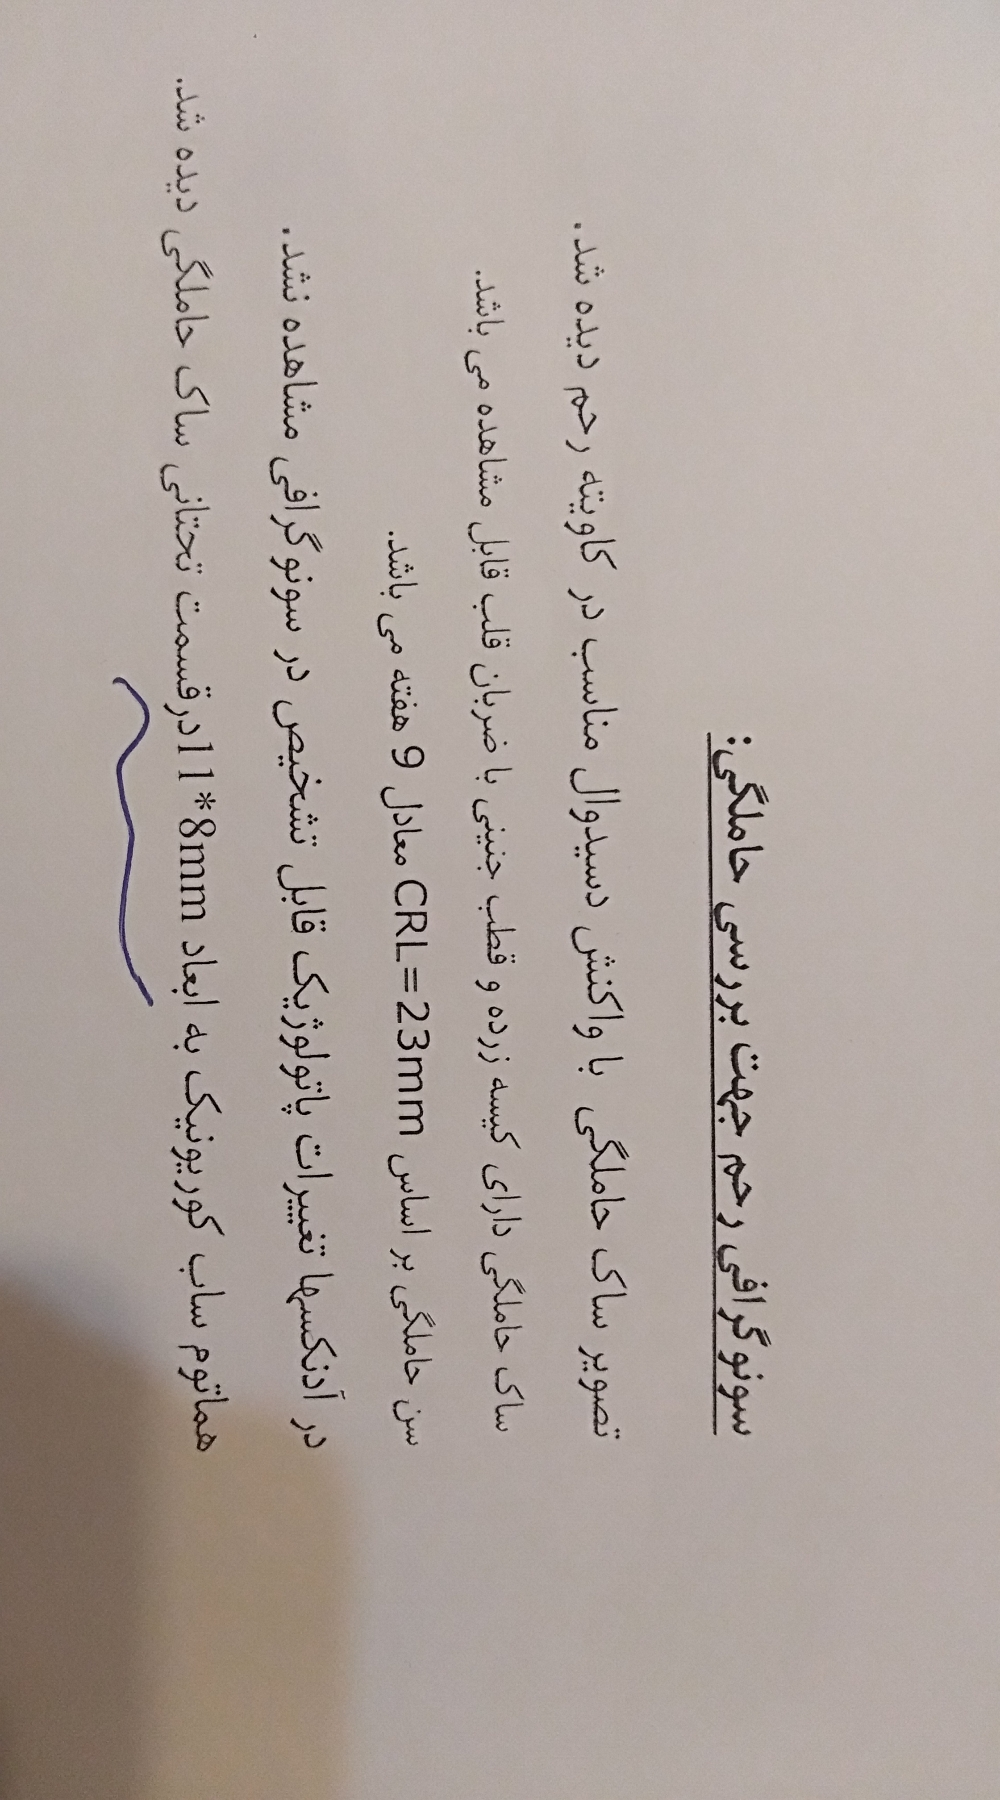 سونوگرافی رحم جهت بررسی حاملگی:
تصویر ساک حاملگی با واکنش دسیدوال مناسب در کاویته رحم دیده شد.
ساک حاملگی دارای کیسه زرده و قطب جنینی با ضربان قلب قابل مشاهده می باشد.
سن حاملگی بر اساس CRL=23mm معادل 9 هفته می باشد.
در آدنکسها تغییرات پاتولوژیک قابل تشخیص در سونوگرافی مشاهده نشد.
هماتوم ساب کوریونیک به ابعاد 11*8mmدرقسمت تحتانی ساک حاملگی دیده شد.